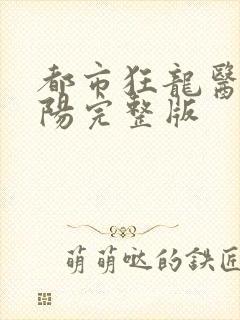 都市狂龍醫
陽完整版
萌萌噠的鉄匠